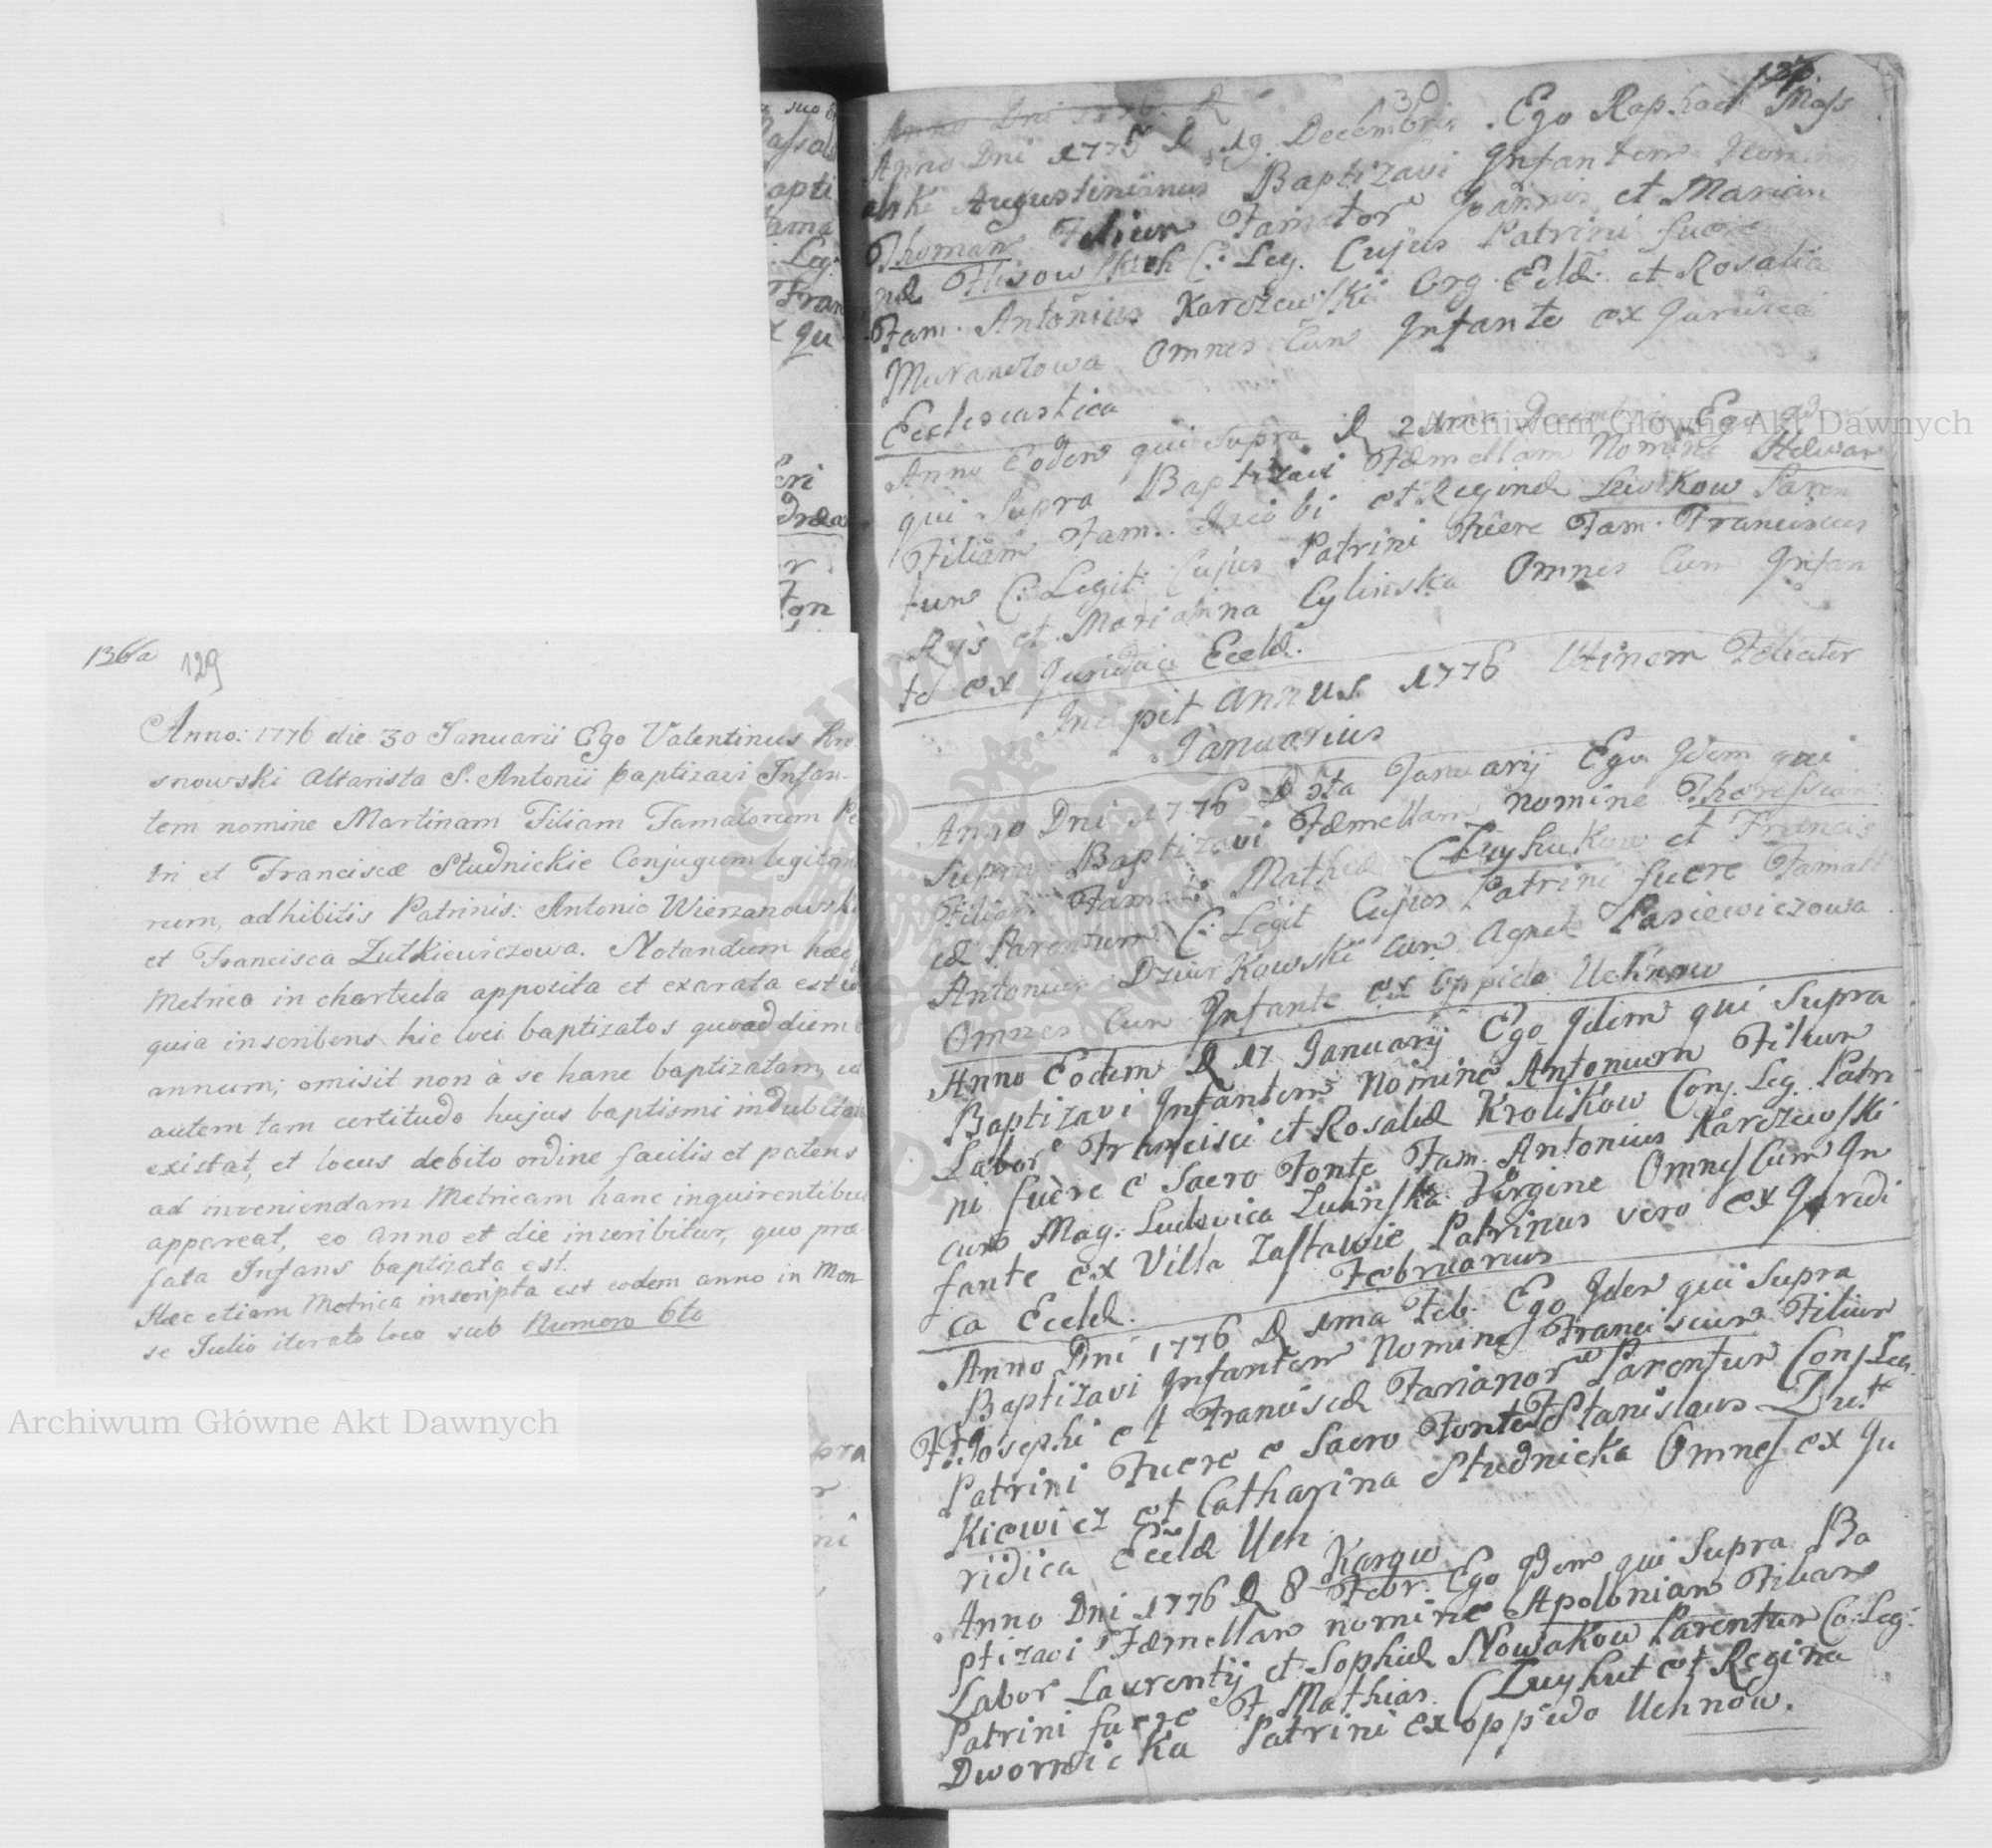 136a 129
Anno: 1776 die 30 Januarii Ego Valentinus Kro
snowski Altarista S. Antonii baptizavi Infan-
tem nomine Martinam Filiam Famatorum Pe
tri et Franciscæ Studnickie Conjugum legitimo
rum, adhibitis Patrinis: Antonio Wierzanowski
et Francisca Zutkiewiczowa. Notandum hæc
Metrica in chartula apposita et exarata est
quia inscribens hic loci baptizatos quoad diem
annum; omisit non à se hanc baptizatam,
autem tam certitudo hujus baptismi indubitata
existat, et locus debito ordine facilis et patens
ad inveniendam Metricam hanc inquirentibus
appareat, eo anno et die inscribitur, quo præ-
fata Infans baptizata est.
Hæc etiam Metrica inscripta est eodem anno in Men-
se Julio iterato loco sub Numero 6to
Archiwum Główne Akt Dawnych
30
Anno Dni 1776 D
Anno Dni 1775 D 19. Decembris. Ego Raphael Mass
alski Augustinianus Baptizavi Infantem Nomine
Thomam Filium Famator Joannis et Marian
næ Flisowskich C: Leg. Cujus Patrini fuere
Fam. Antonius Karczewski Org. Eclæ. et Rosalia
Murancowa Omnes Cum Infante ex Juridica
Ecclesiastica
Anno Eodem qui Supra D 21ma Decembris Ego
qui Supra Baptizavi Fæmellam Nomine
Filiam Fam. Jacobi et Reginæ Lewkow Paren
tum C: Legit: Cujus Patrini Fuere Fam. Franciscus
Ryś et Marianna Cylinska Omnes Cum Infan
te ex Juridica Ecclæ.
Incipit annus 1776 Utinam Feliciter
Januarius
Anno Dni 1776 D Januarij Ego Idem qui
Supra Baptizavi Fæmellam nomine Theressiam
Filiam Fama: Mathiæ et Francis
cæ Parentum C: Legit Cujus Patrini fuere Famati
Antonius Dziurkowski cum Agnete Pasiewiczowa
Omnes Cum Infante ex Oppido Uchnow
Anno Eodem D 17 Januarij Ego Idem qui Supra
Baptizavi Infantem Nomine Antonium Filium
Labor Francisci et Rosaliæ Krolikow Conj. Leg. Patri
ni fuere e Sacro Fonte Fam. Antonius Karczewski
cum Mag: Ludovica Virgine Omnes Cum In
fante ex Villa Zastawie Patrinus vero ex Juridi
ca Ecclæ.
Februarius
Anno Dni 1776 D 1ma Feb. Ego Idem qui Supra
Baptizavi Infantem Nomine Franciscum Filium
FF. Josephi et Franciscæ Farianor Parentum Conj Leg.
Patrini Fuere e Sacro Fonte F Stanislaus Zut
Kiewicz et Catharina Studnicka Omnes ex Ju
ridica Ecclæ Uch
Anno Dni 1776 D 8 Febr. Ego Idem qui Supra Ba
ptizavi Fæmellam nomine Apoloniam Filiam
Labor Laurentij et Sophiæ Nowakow Parentum Co: Leg:
Patrini fuere F Mathias et Regina
Dwornicka Patrini ex oppido Uchnow.
Archiwum Główne Akt Dawnych
ARCHIWUM GŁÓWNE AKT DAWNYCH